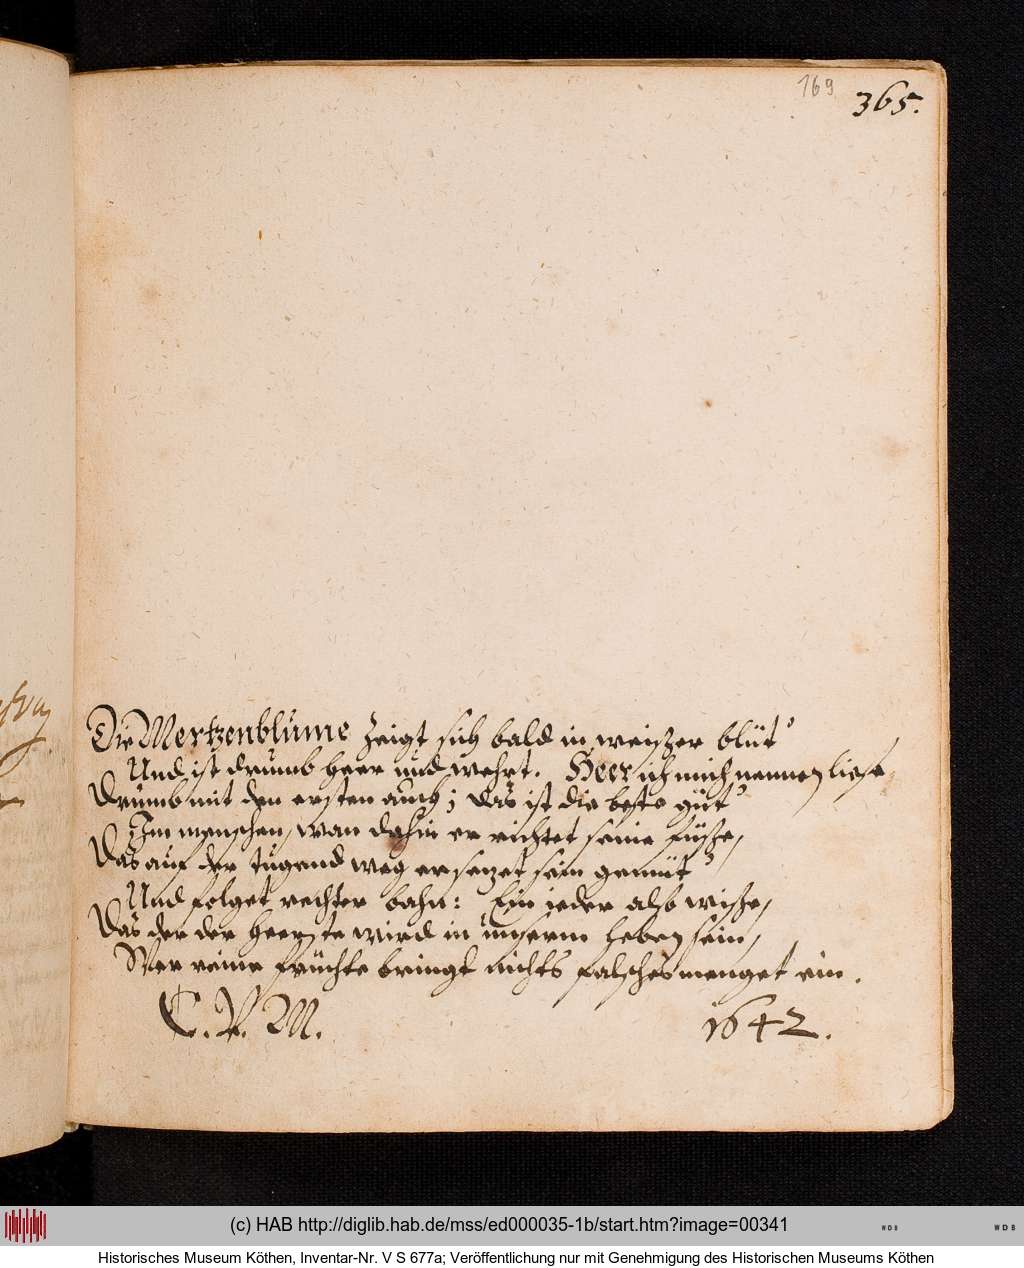 169
365.
Die Mertzenblume zeigt sich bald in weiszer blüt'
Und ist drumb heer und wehrt. Heer ich mich nennen liese
Drumb mit den ersten auch; das ist die beste güt'
Im menschen, wan dahin er richtet seine füsze,
Das auf der tugend weg er setzet sein gemüt'
Und folget rechter bahn: Ein ieder also wisze,
Das der der heerste wird in unserm leben sein,
Wer reine früchte bringt nichts falsches menget ein.
C. V. M. 1642.
(c) HAB http://diglib.hab.de/mss/ed000035-1b/start.htm?image=00341
WDB WDB
Historisches Museum Köthen, Inventar-Nr. V S 677a; Veröffentlichung nur mit Genehmigung des Historischen Museums Köthen